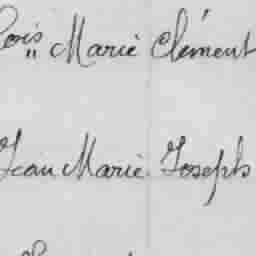 „ Marie Clément
Jean Marie Joseph